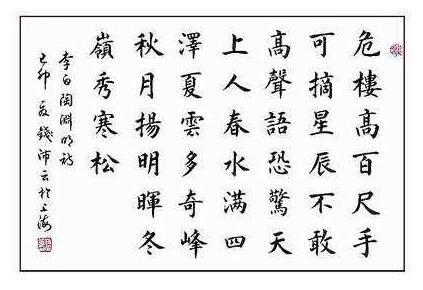 危樓高百尺手
可摘星辰不敢
高聲語恐驚天
上人春水满四
澤夏雲多奇峰
秋月揚明暉冬
嶺秀寒松
李白陶淵明詩
己卯夏錢沛云於上海